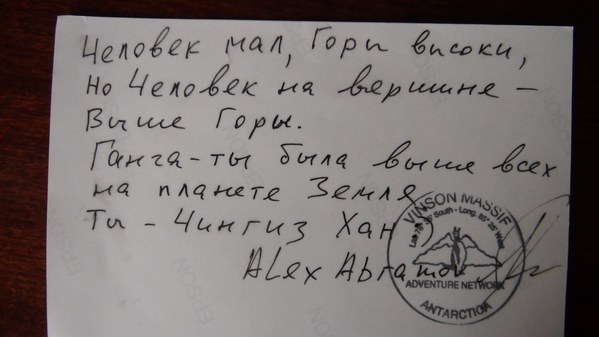 Человек мал, Горы высоки,
Но Человек на вершине –
Выше Горы.
Ганга-ты была выше всех
на планете Земля
Ты - Чингиз Хан)
ALex Abramov
VINSON MASSIF
South - Long.
West
ADVENTURE NETWORK
ANTARCTICA
EPSON